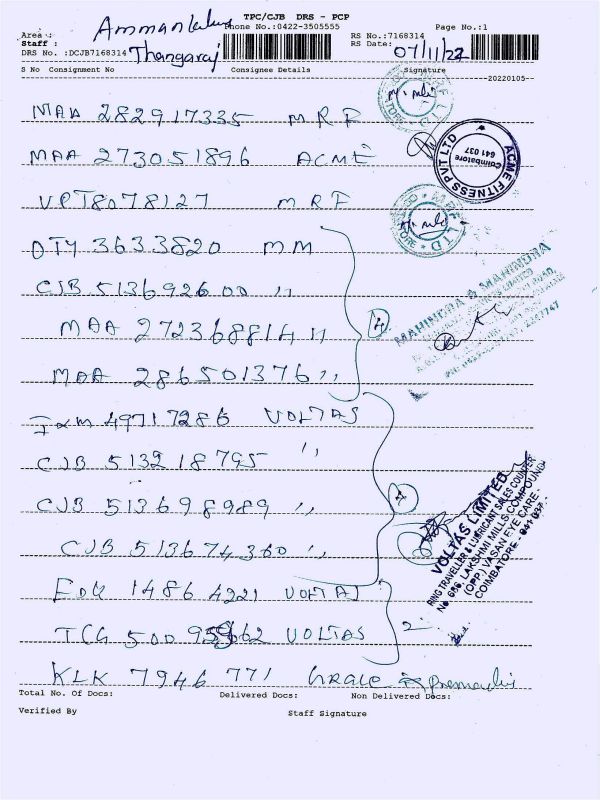 TPC/CJB DRS - PCP
Phone No.:0422-3505555
Page No.:1
Area :
RS No.:7168314
Staff : Thangaraj
RS Date: 07/11/22
DRS No. :DCJB7168314
S No Consignment No Consignee Details Signature
20220105
MAA 282917335 MRF
MAA 273051896 ACME
VPT8078127 MRF
OTY 3633820 MM
CJB 513692600 ,,
MAA 272368814 ,,
MAA 286501376 ,,
49717286 VOLTAS
CJB 513218795 ,,
CJB 513698989 ,,
CJB 513674360 ,,
EDK 14864221 VOLTAS
TCG 500 662 VOLTAS
KLK 7946771 Grace
4
4
2
MRF LTD
ACME FITNESS PVT LTD
Coimbatore
641 037
MRF LTD
STORE
MAHINDRA & MAHINDRA
LIMITED
VOLTAS LIMITED
RING TRAVELLER & LUBRICANT SALES COUNTER
No 656, LAKSHMI MILLS COMPOUND
(OPP) VASAN EYE CARE
COIMBATORE - 641 037.
Total No. Of Docs: Delivered Docs: Non Delivered Docs:
Verified By Staff Signature